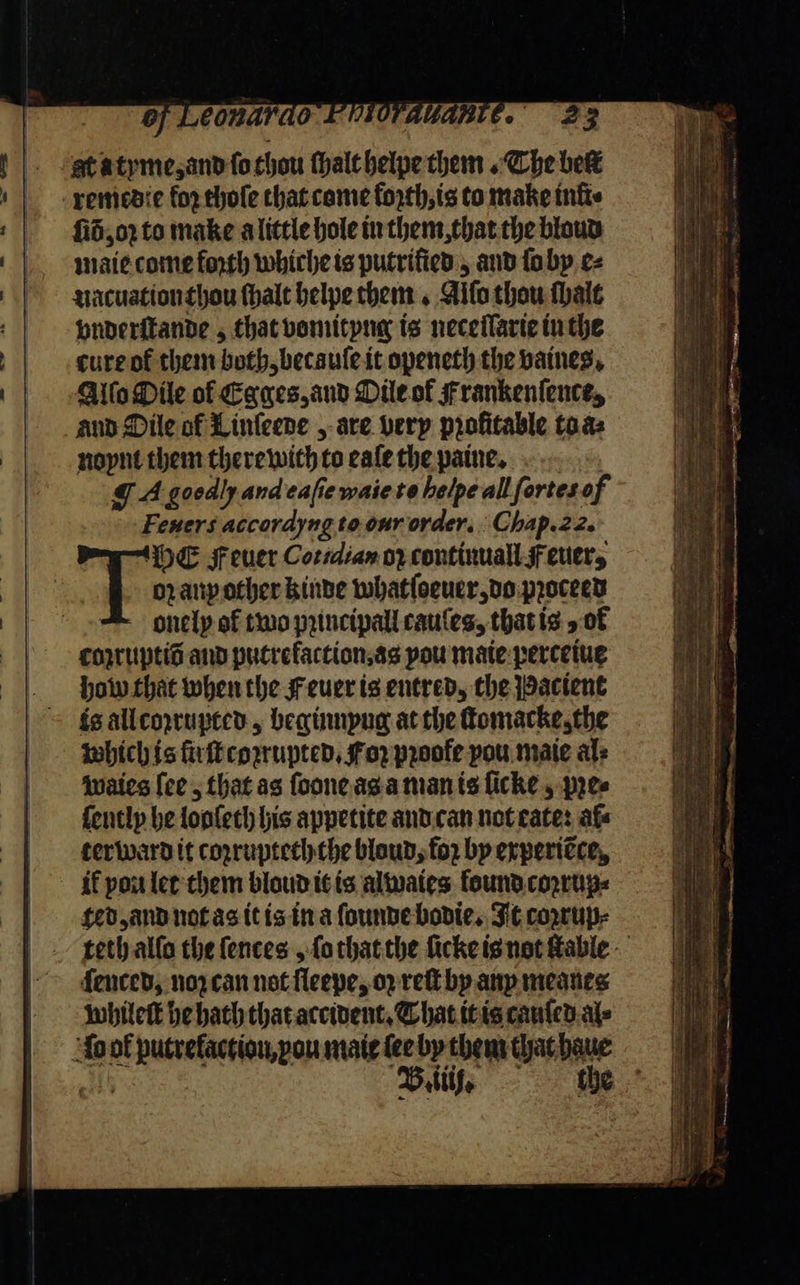 of Leonardo Phiorauante. 23
at a tyme, and so thou shalt helpe them. The best
remedie for those that come forth, is to make insi-
siō, or to make a little hole in them, that the bloud
maie come forth whiche is putrified, and so by e-
uacuation thou shalt helpe them. Also thou shalt
vnderstande, that vomityng is necessarie in the
cure of them both, because it openeth the vaines.
Also Oile of Egges, and Oile of Frankensence,
and Oile of Linseede, are very profitable to a-
noynt them therewith to ease the paine.
¶ A goodly and easie waie to helpe all sortes of
Feuers accordyng to our order. Chap. 22.
THE Feuer Cotidian or continuall Feuer,
or any other kinde whatsoeuer, do proceed
onely of two principall causes, that is, of
corruptiō and putrefaction, as you maie perceiue
how that when the Feuer is entred, the Pacient
is all corrupted, beginnyng at the stomacke, the
which is first corrupted. For proofe you maie al-
waies see, that as soone as a man is sicke, pre-
sently he looseth his appetite and can not eate: af-
terward it corrupteth the bloud, for by experiēce,
if you let them bloud it is alwaies found corrup-
ted, and not as it is in a sounde bodie. It corrup-
teth also the sences, so that the sicke is not stable
senced, nor can not sleepe, or rest by any meanes
whilest he hath that accident. That it is caused al-
so of putrefaction, you maie see by them that haue
B.iiij. the